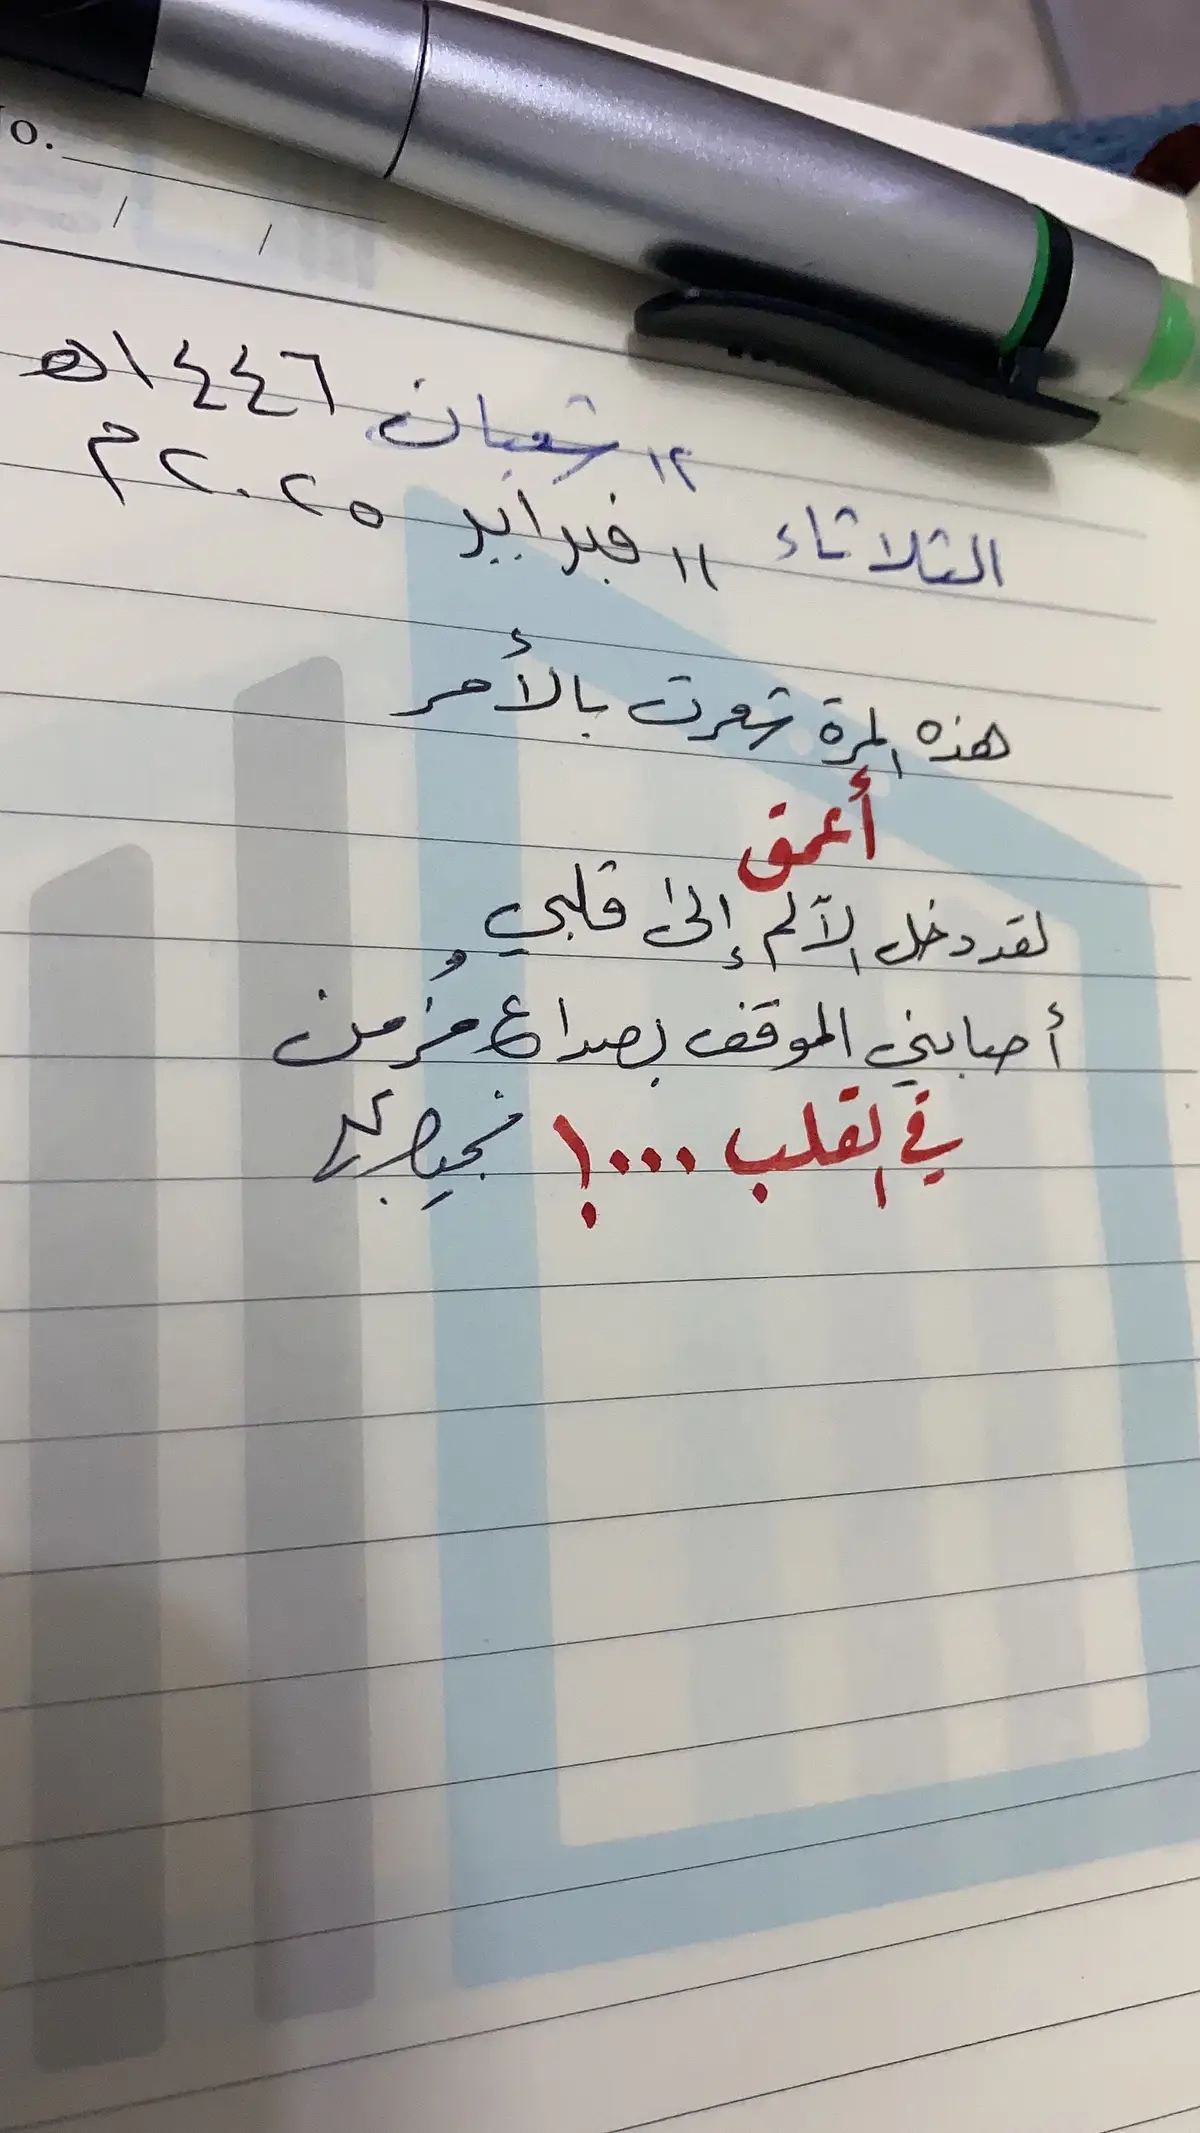 No.
/ /
١٢ شعبان ١٤٤٦هـ
الثلاثاء ١١ فبراير ٢٠٢٥م
هذه المرة شعرت بالأمر
أعمق
لقد دخل الآلم إلى قلبي
أصابني الموقف بصداع مُزمن
في القلب ...!